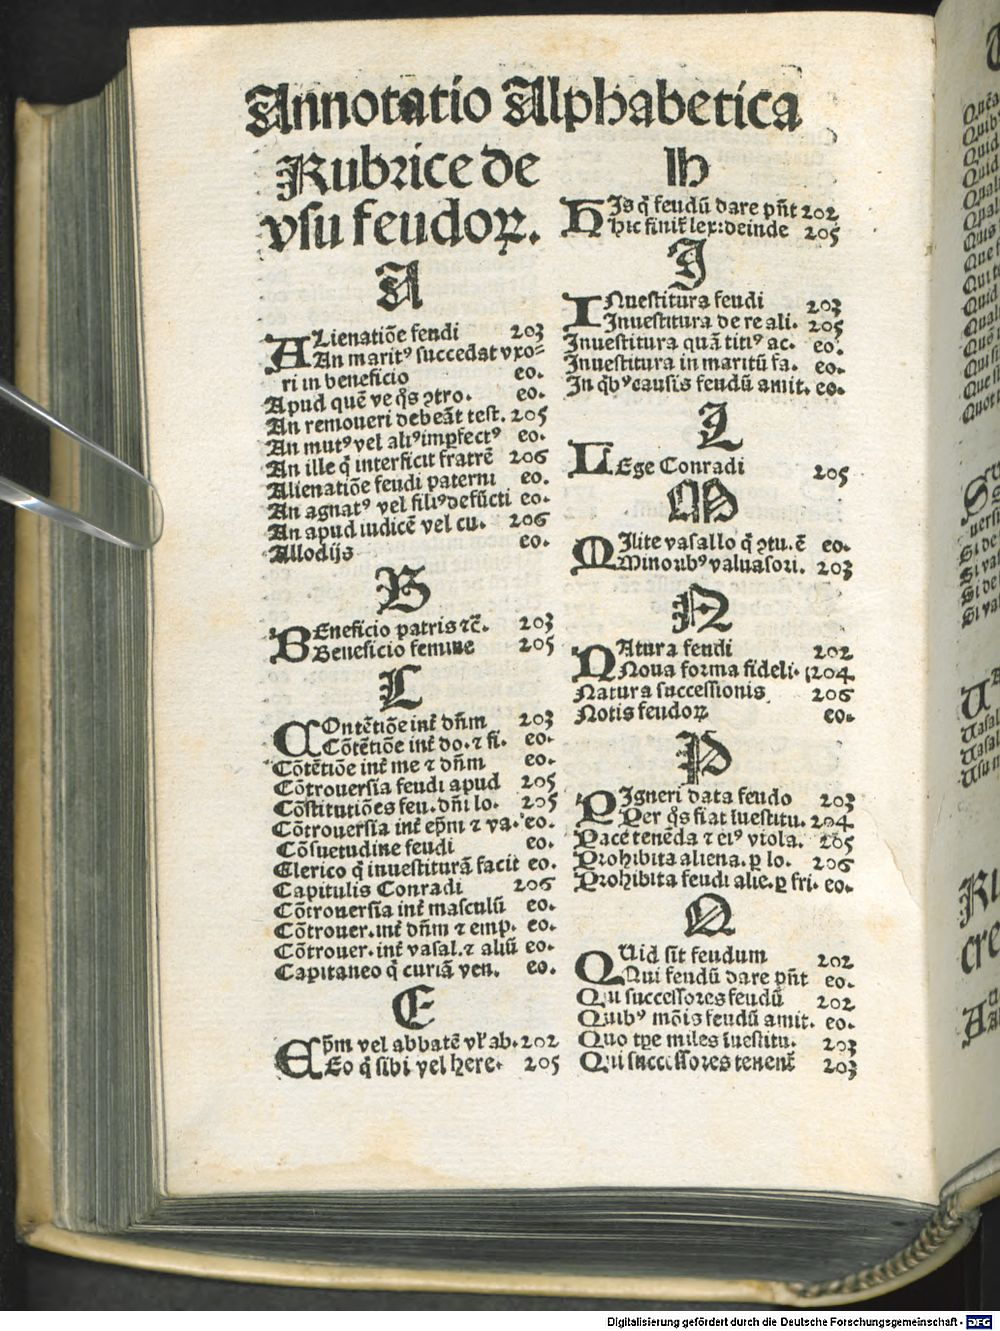 Annotatio Alphabetica
Rubrice de
vsu feudoꝝ.
A
ALienatiõe feudi 203
An maritꝰ succedat vxo⸗
ri in beneficio eo.
Apud quẽ ve q̃s ↄtro. eo.
An remoueri debeãt test. 205
An mutꝰ vel aliꝰ imꝑfectꝰ eo.
An ille q̃ interficit fratrẽ 206
Alienatiõe feudi paterni eo.
An agnatꝰ vel filiꝰ defũcti eo.
An apud iudicẽ vel cu. 206
Allodijs eo.
B
BEneficio patris ⁊c̃. 203
Beneficio femine 205
C
COntẽtiõe int̃ dñm 203
Cõtẽtiõe int̃ do. ⁊ fi. eo.
Cõtẽtiõe int̃ me ⁊ dñm eo.
Cõtrouersia feudi apud 205
Cõstitutiões feu. dñi lo. 205
Cõtrouersia int̃ ep̃m ⁊ va. eo.
Cõsuetudine feudi eo.
Clerico q̃ inuestiturã facit eo.
Capitulis Conradi 206
Cõtrouersia int̃ masculũ eo.
Cõtrouer. int̃ dñm ⁊ emp. eo.
Cõtrouer. int̃ vasal. ⁊ aliũ eo.
Capitaneo q̃ curiã ven. eo.
E
Ep̃m vel abbatẽ vl̕ ab. 202
Eo q̃ sibi vel here. 205
H
HIs q̃ feudũ dare pñt 202
Hic finit̃ lex: deinde 205
I
INuestitura feudi 203
Inuestitura de re ali. 205
Inuestitura quã titiꝰ ac. eo.
Inuestitura in maritũ fa. eo.
In q̃bꝰ causis feudũ amit. eo.
L
LEge Conradi 205
M
MIlite vasallo q̃ ↄtu. ẽ eo.
Minoribꝰ valuasori. 203
N
NAtura feudi 202
Noua forma fideli. 204
Natura successionis 206
Notis feudoꝝ eo.
P
PIgneri data feudo 203
Per q̃s fiat inuestitu. 204
Pace tenẽda ⁊ eiꝰ viola. 205
Prohibita aliena. ꝑ lo. 206
Prohibita feudi aliẽ. ꝑ fri. eo.
Q
QUid sit feudum 202
Qui feudũ dare pñt eo.
Qui successores feudũ 202
Quibꝰ mõis feudũ amit. eo.
Quo tꝑe miles inuestitu. 203
Qui successores tenent̃ 203
Digitalisierung gefördert durch die Deutsche Forschungsgemeinschaft - DFG